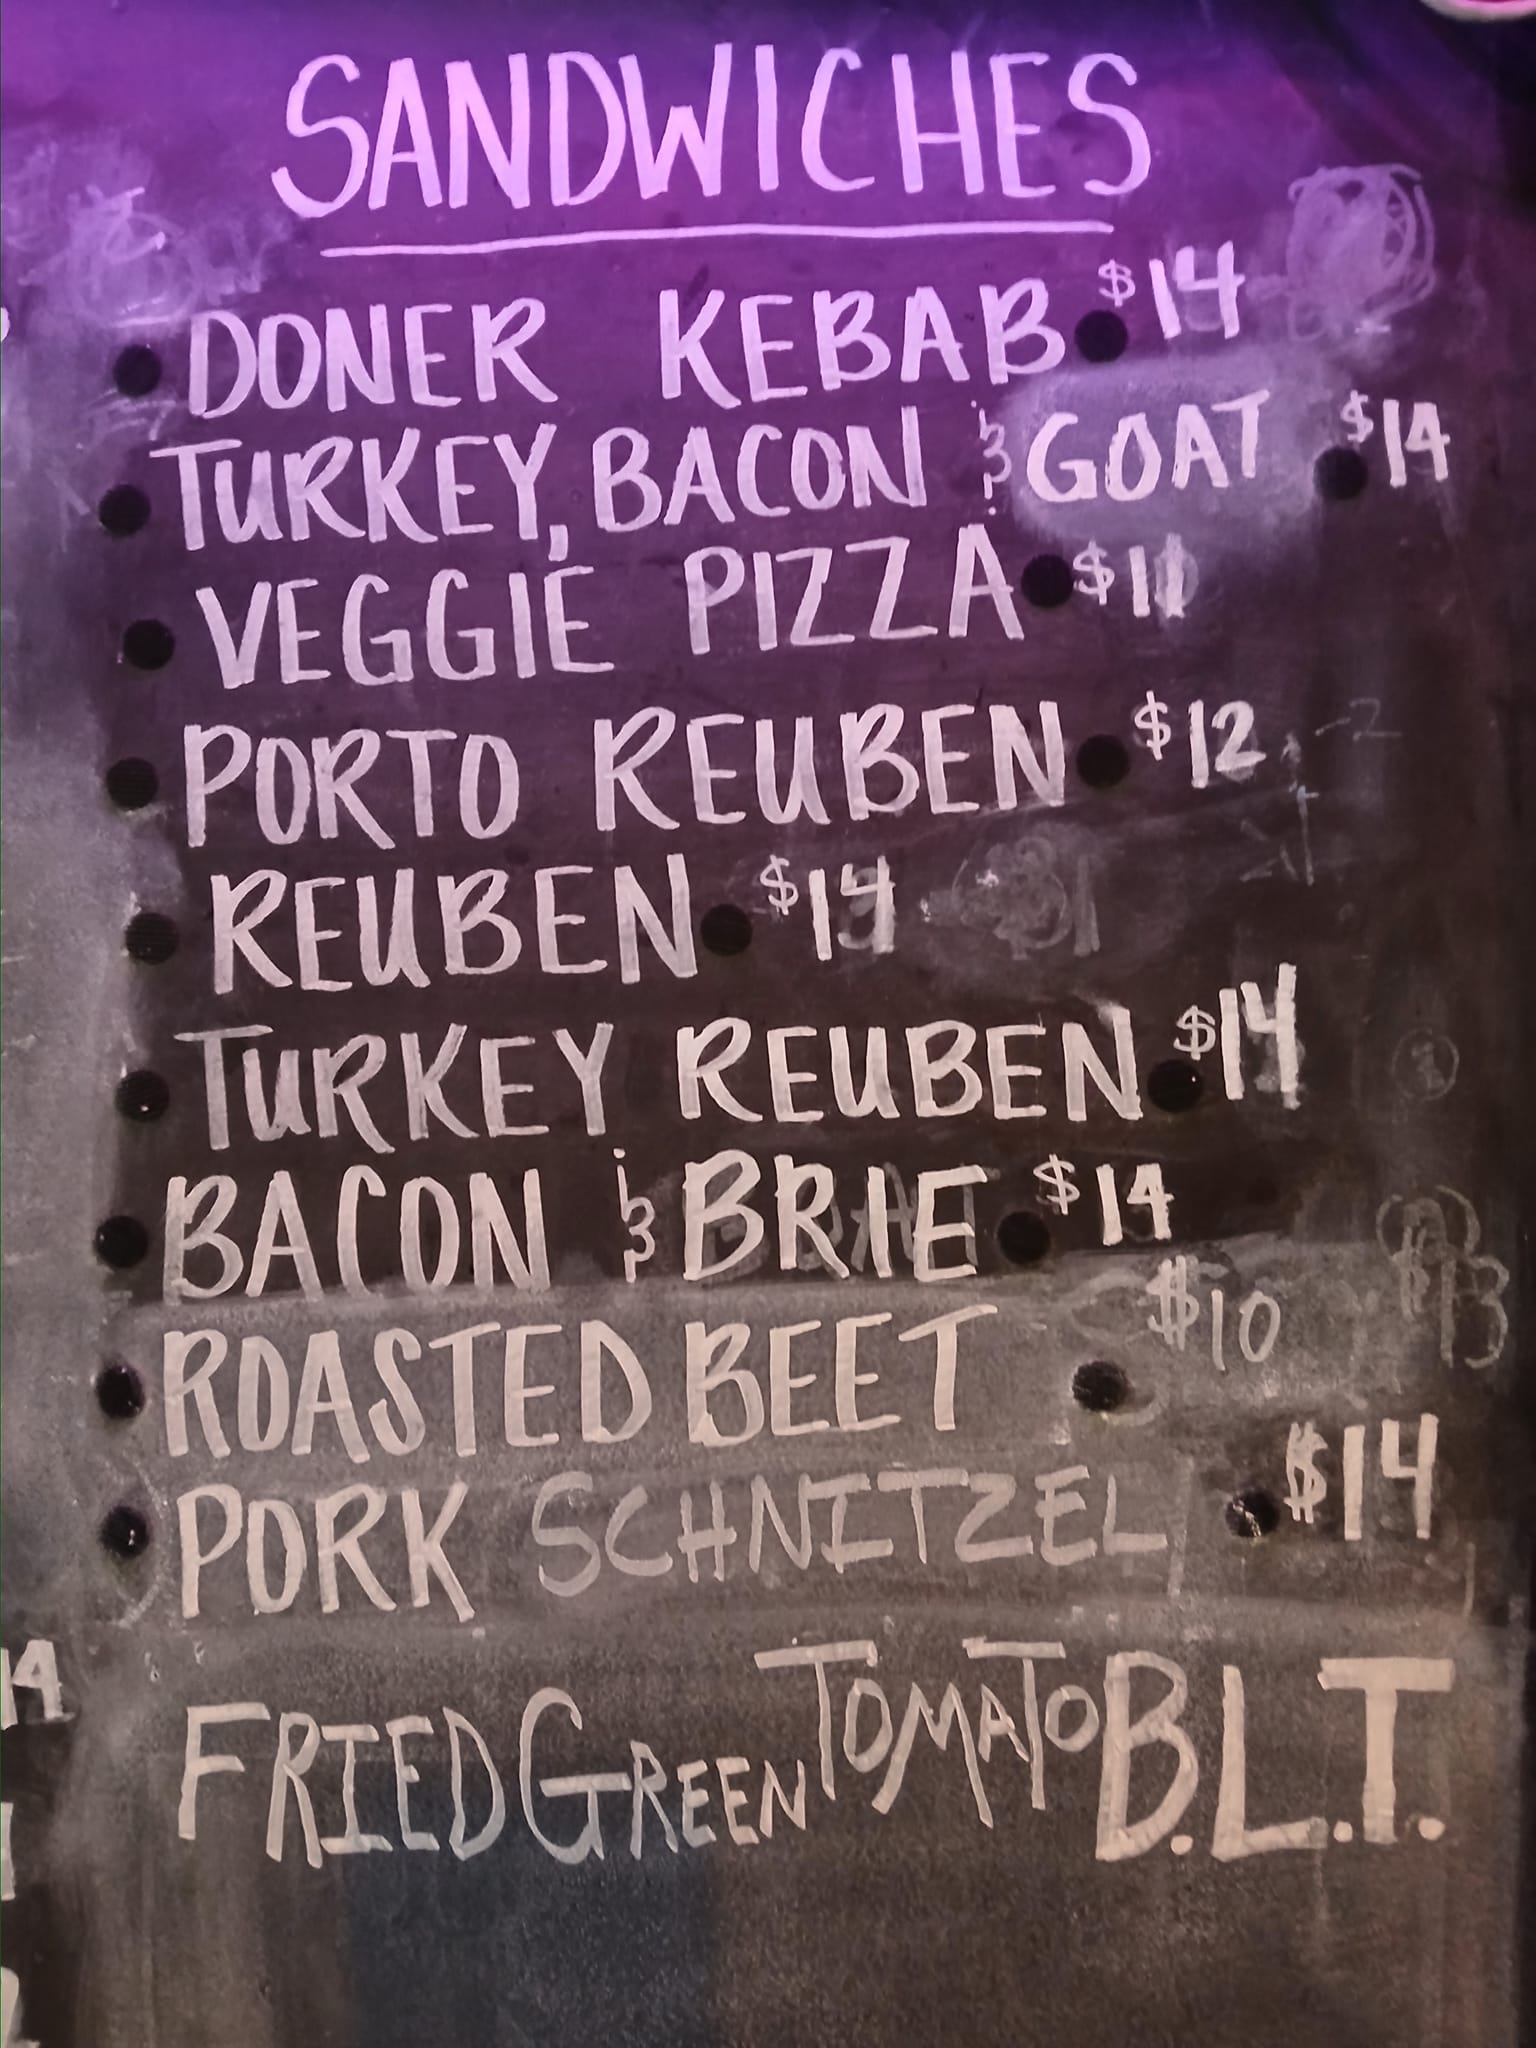 SANDWICHES
DONER KEBAB $14
TURKEY, BACON & GOAT $14
VEGGIE PIZZA $11
PORTO REUBEN $12
REUBEN $14
TURKEY REUBEN $14
BACON & BRIE $14
ROASTED BEET $10
PORK SCHNITZEL $14
FRIED GREEN TOMATO B.L.T.